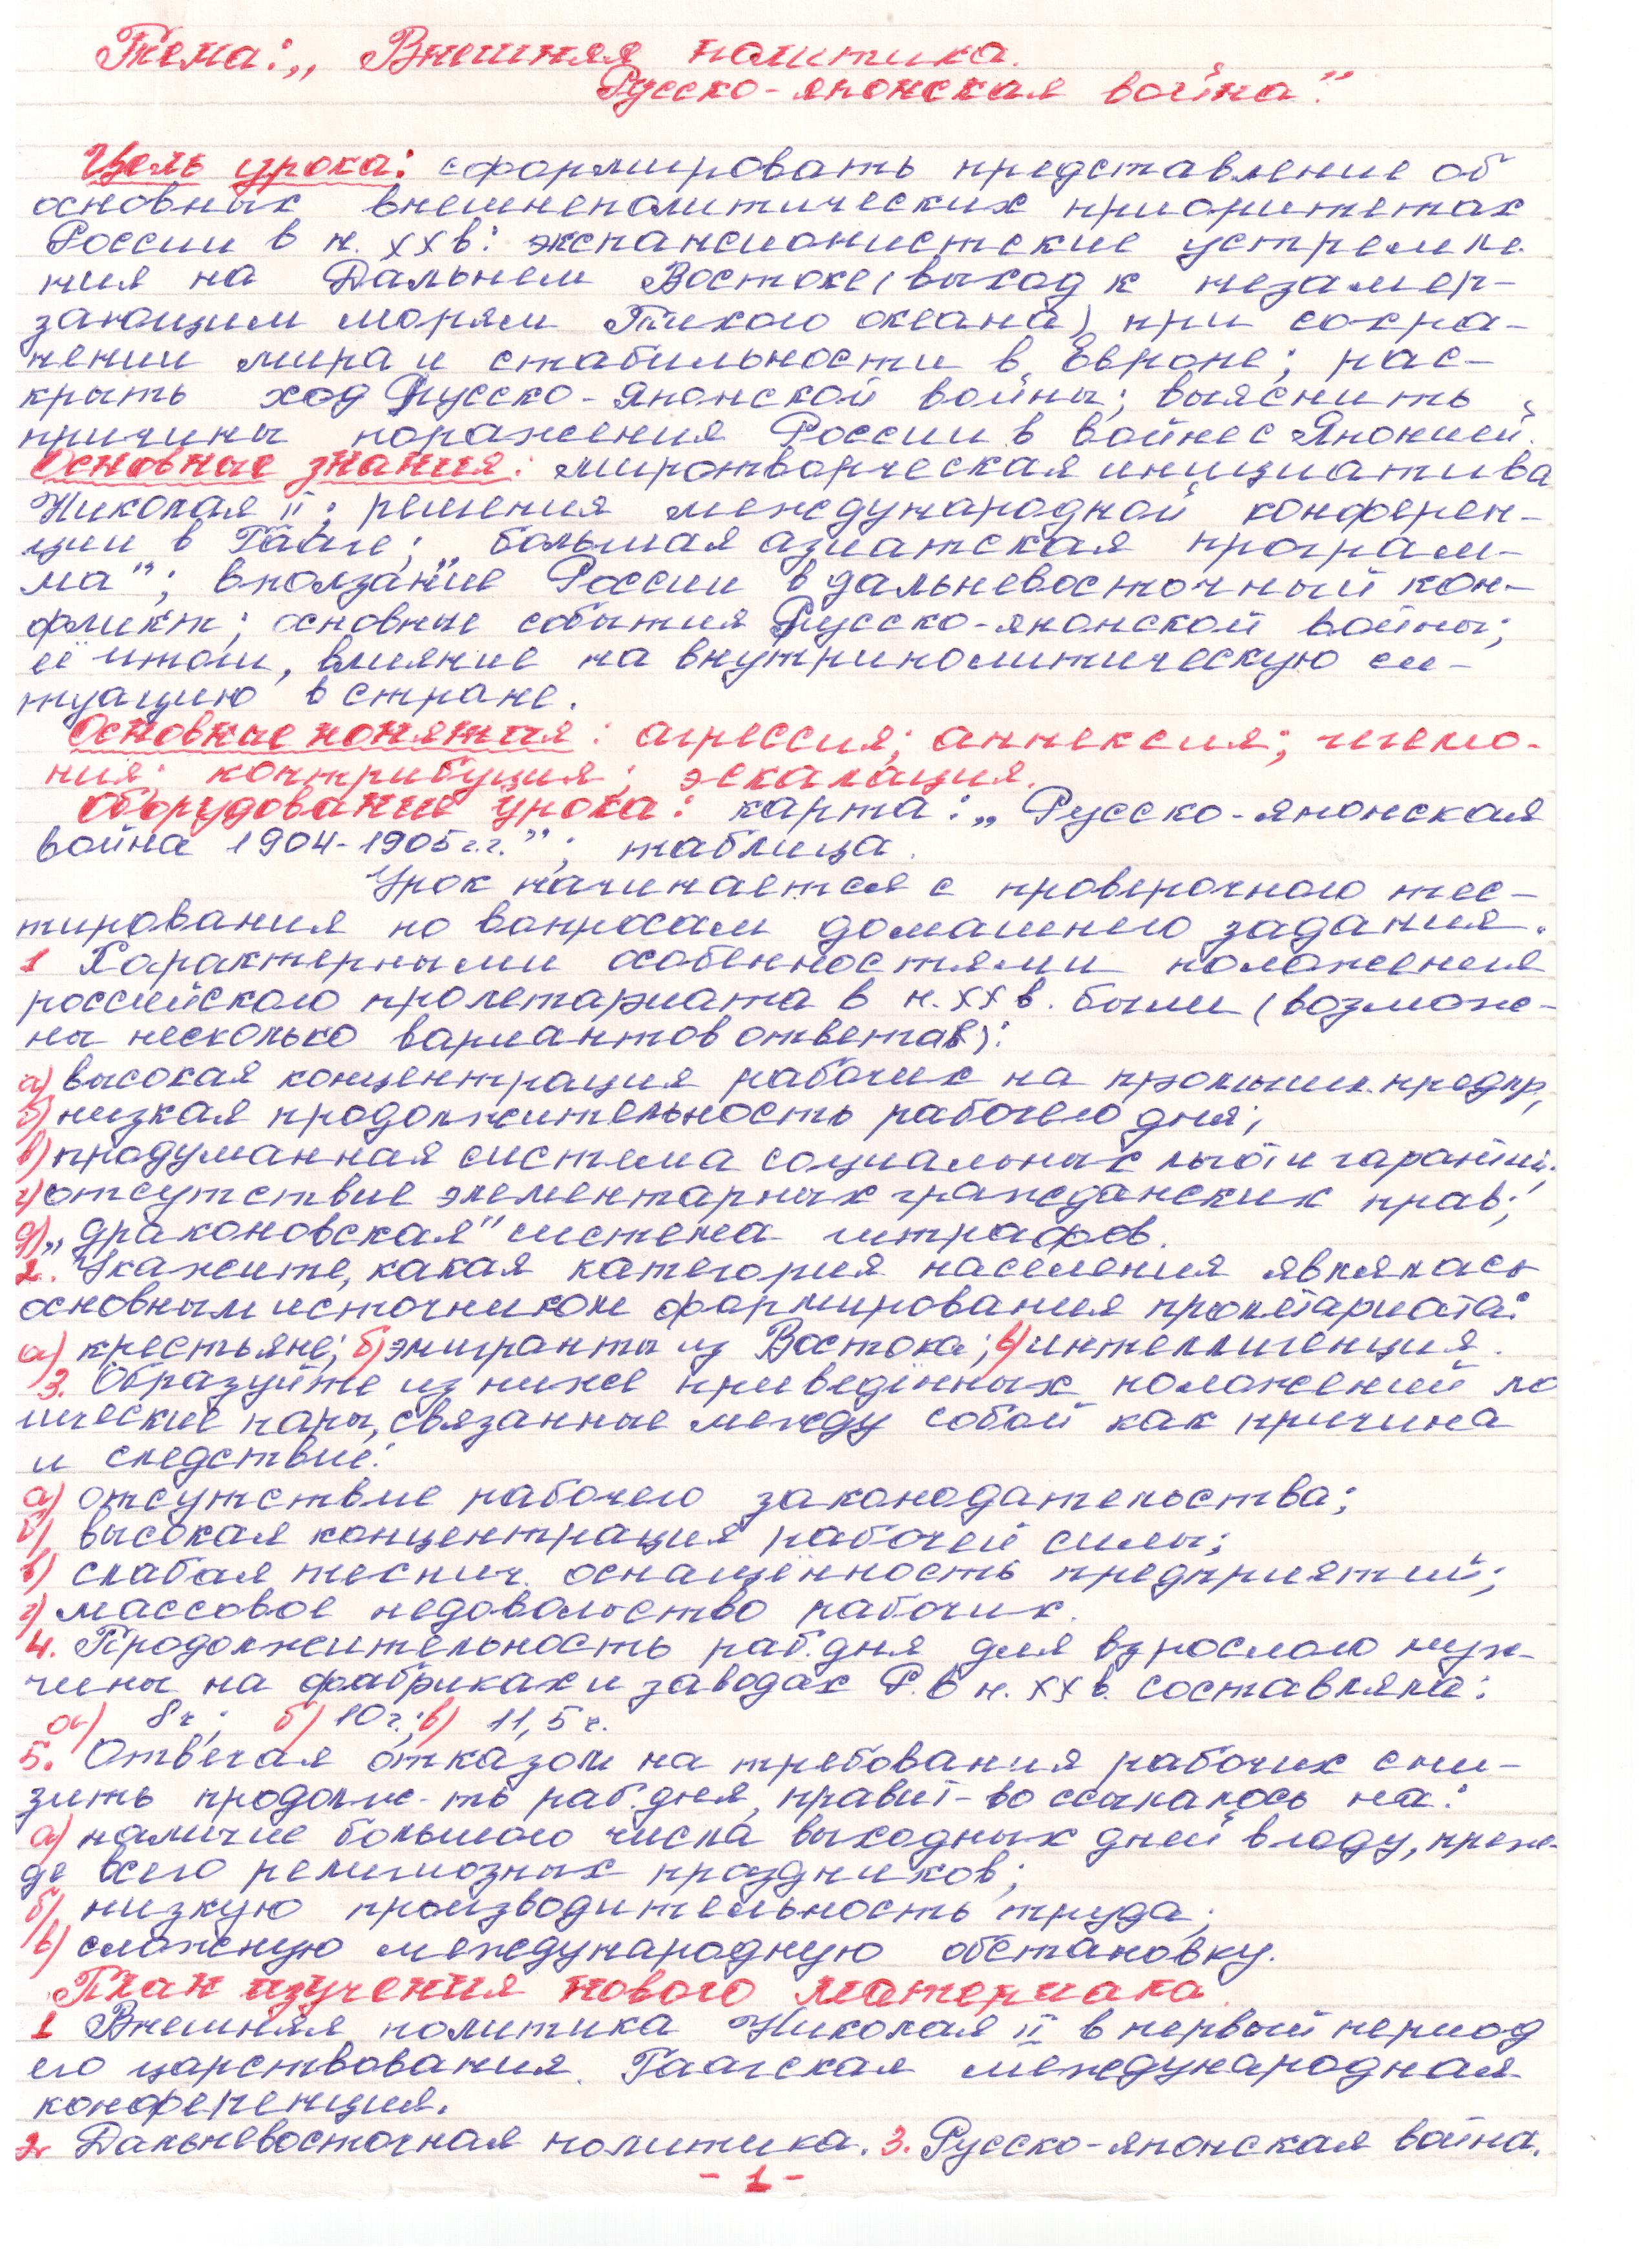 Тема: „Внешняя политика.
Русско-японская война".
Цель урока: сформировать представление об
основных внешнеполитических приоритетах
России в н. XXв: экспансионистские устремле-
ния на Дальнем Востоке (выход к незамер-
зающим морям Тихого океана) при сохра-
нении мира и стабильности в Европе; рас-
крыть ход Русско-японской войны; выяснить
причины поражения России в войне с Японией.
Основные знания: миротворческая инициатива
Николая II; решения международной конферен-
ции в Гааге; „большая азиатская програм-
ма"; вползание России в дальневосточный кон-
фликт; основные события Русско-японской войны;
её итоги, влияние на внутриполитическую си-
туацию в стране.
Основные понятия: агрессия; аннексия; гегемо-
ния; контрибуция; эскалация.
Оборудование урока: карта: „Русско-японская
война 1904-1905г.г."; таблица.
Урок начинается с проверочного тес-
тирования по вопросам домашнего задания.
1 Характерными особенностями положения
российского пролетариата в н. XX в. были (возмож-
ны несколько вариантов ответов):
а) высокая концентрация рабочих на промышл. предпр.;
б) низкая продолжительность рабочего дня;
в) продуманная система социальных льгот и гарантий;
г) отсутствие элементарных гражданских прав;
д) „драконовская" система штрафов.
2. Укажите, какая категория населения являлась
основным источником формирования пролетариата:
а) крестьяне; б) эмигранты из Востока; в) интеллигенция.
3. Образуйте из ниже приведённых положений ло
гические пары, связанные между собой как причина
и следствие:
а) отсутствие рабочего законодательства;
б) высокая концентрация рабочей силы;
в) слабая технич. оснащённость предприятий;
г) массовое недовольство рабочих.
4. Продолжительность раб. дня для взрослого муж-
чины на фабриках и заводах Р. в н. XX в. составляла:
а) 8ч.; б) 10 ч.; в) 11,5 ч.
5. Отвечая отказом на требования рабочих сни-
зить продолж-ть раб. дня, правит-во ссылалось на:
а) наличие большого числа выходных дней в году, преж-
де всего религиозных праздников;
б) низкую производительность труда;
в) сложную международную обстановку.
План изучения нового материала
1 Внешняя политика Николая II в первый период
его царствования. Гаагская международная
конференция.
2. Дальневосточная политика. 3. Русско-японская война.
- 1 -